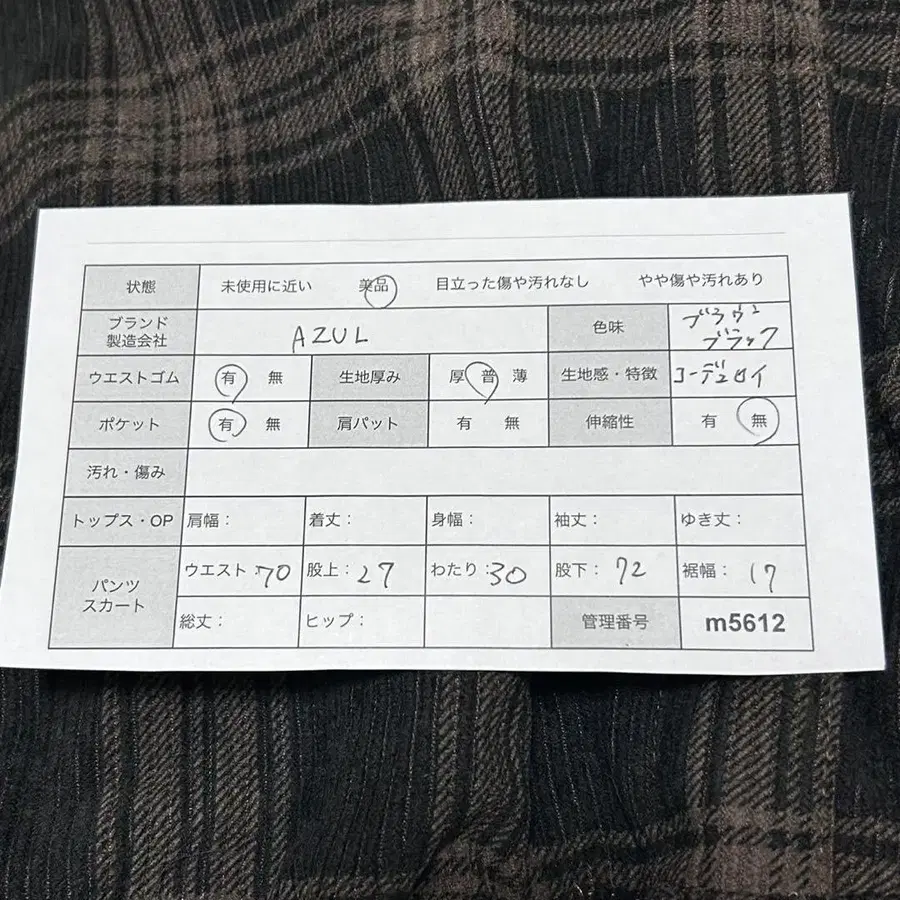 状態 未使用に近い 美品 目立った傷や汚れなし やや傷や汚れあり
ブランド
製造会社 AZUL 色味 ブラウン
ブラック
ウエストゴム 有 無 生地厚み 厚 普 薄 生地感・特徴 コーデュロイ
ポケット 有 無 肩パット 有 無 伸縮性 有 無
汚れ・傷み
トップス・OP 肩幅: 着丈: 身幅: 袖丈: ゆき丈:
パンツ
スカート ウエスト:70 股上:27 わたり:30 股下:72 裾幅:17
総丈: ヒップ: 管理番号 m5612